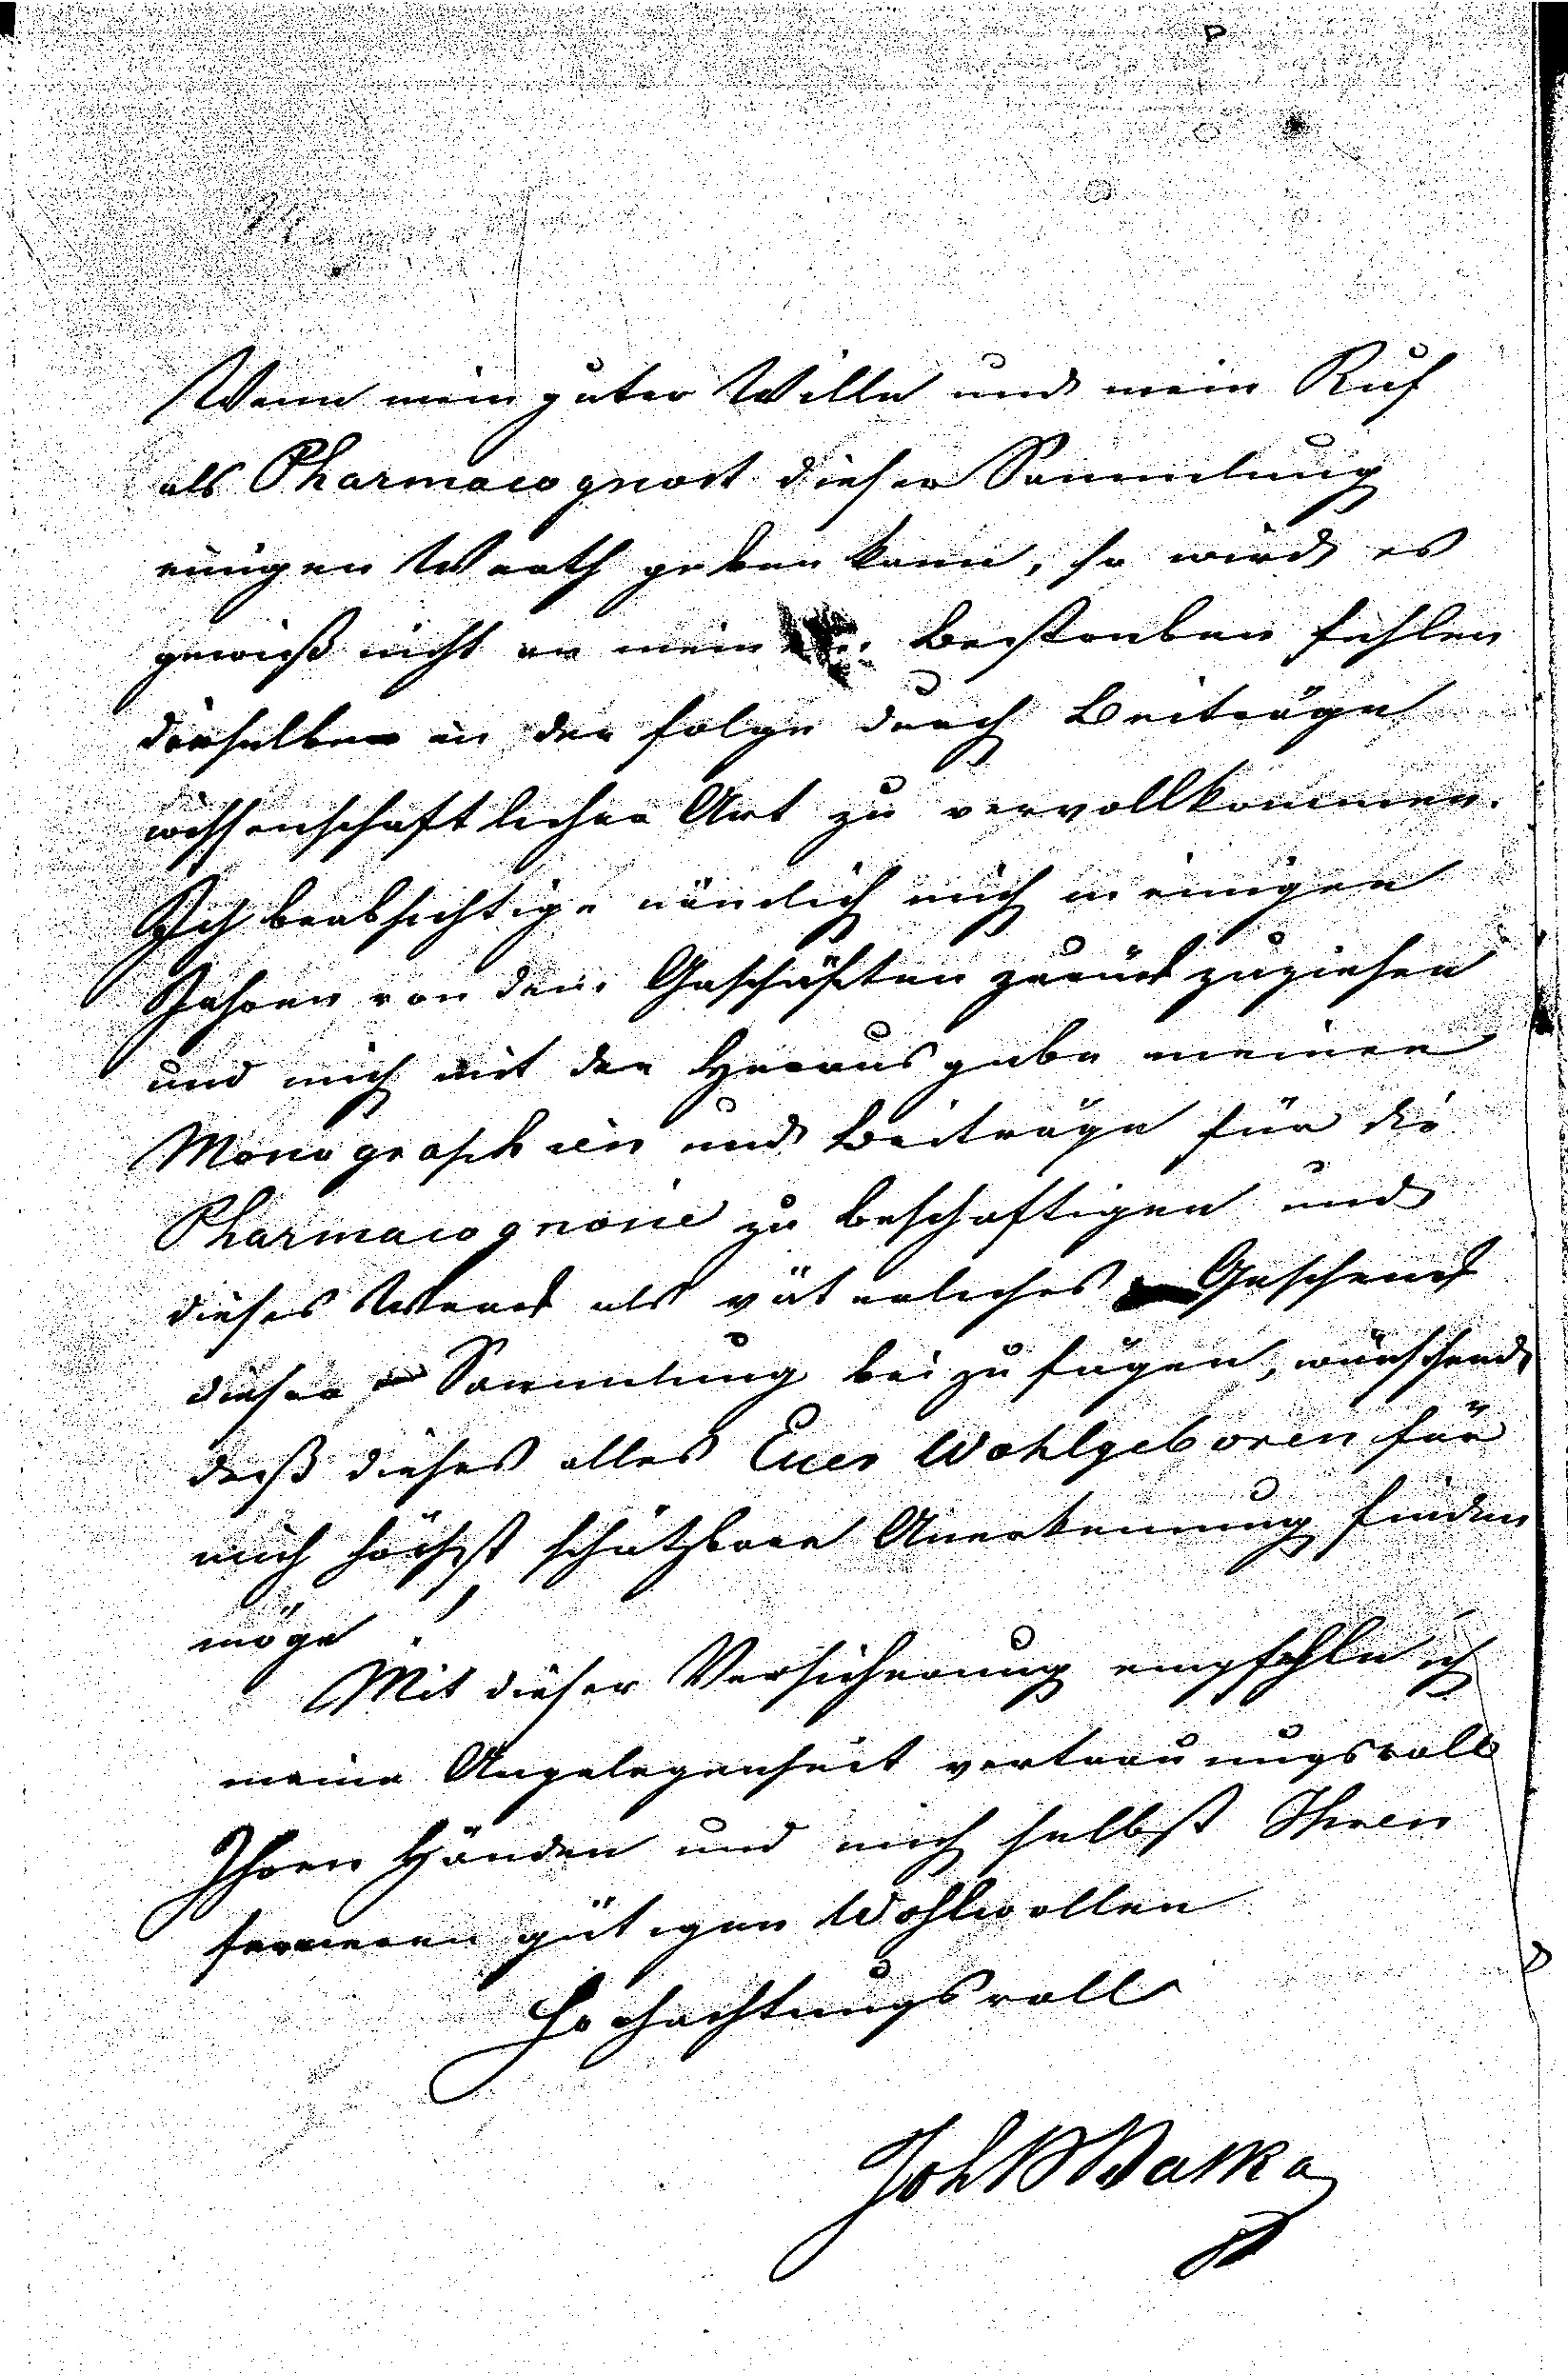 Wenn mein guter Wille und mein Ruf
als Pharmacognost dieser Sammlung
einigen Werth geben kann, so wird es
gewiß nicht an meinem Bestreben fehlen
dieselbe in der Folge durch Beiträge
wissenschaftlicher Art zu vervollkommnen.
Ich beabsichtige nämlich mich in einigen
Jahren von den Geschäften zurückzuziehen
und mich mit der Herausgabe meiner
Monographien und Beiträge für die
Pharmacognosie zu beschäftigen und
dieses Werck als väterliches Geschenck
dieser Sammlung beizufügen, wünschend
daß dieses alles Euer Wohlgeboren für
mich höchst schätzbare Anerkennung finden
möge!
Mit dieser Versicherung empfehle ich
meine Angelegenheit vertrauungsvoll
Ihren Händen und mich selbst Ihren
ferneren gütigen Wohlwollen
Hochachtungsvoll
Joh B Batka